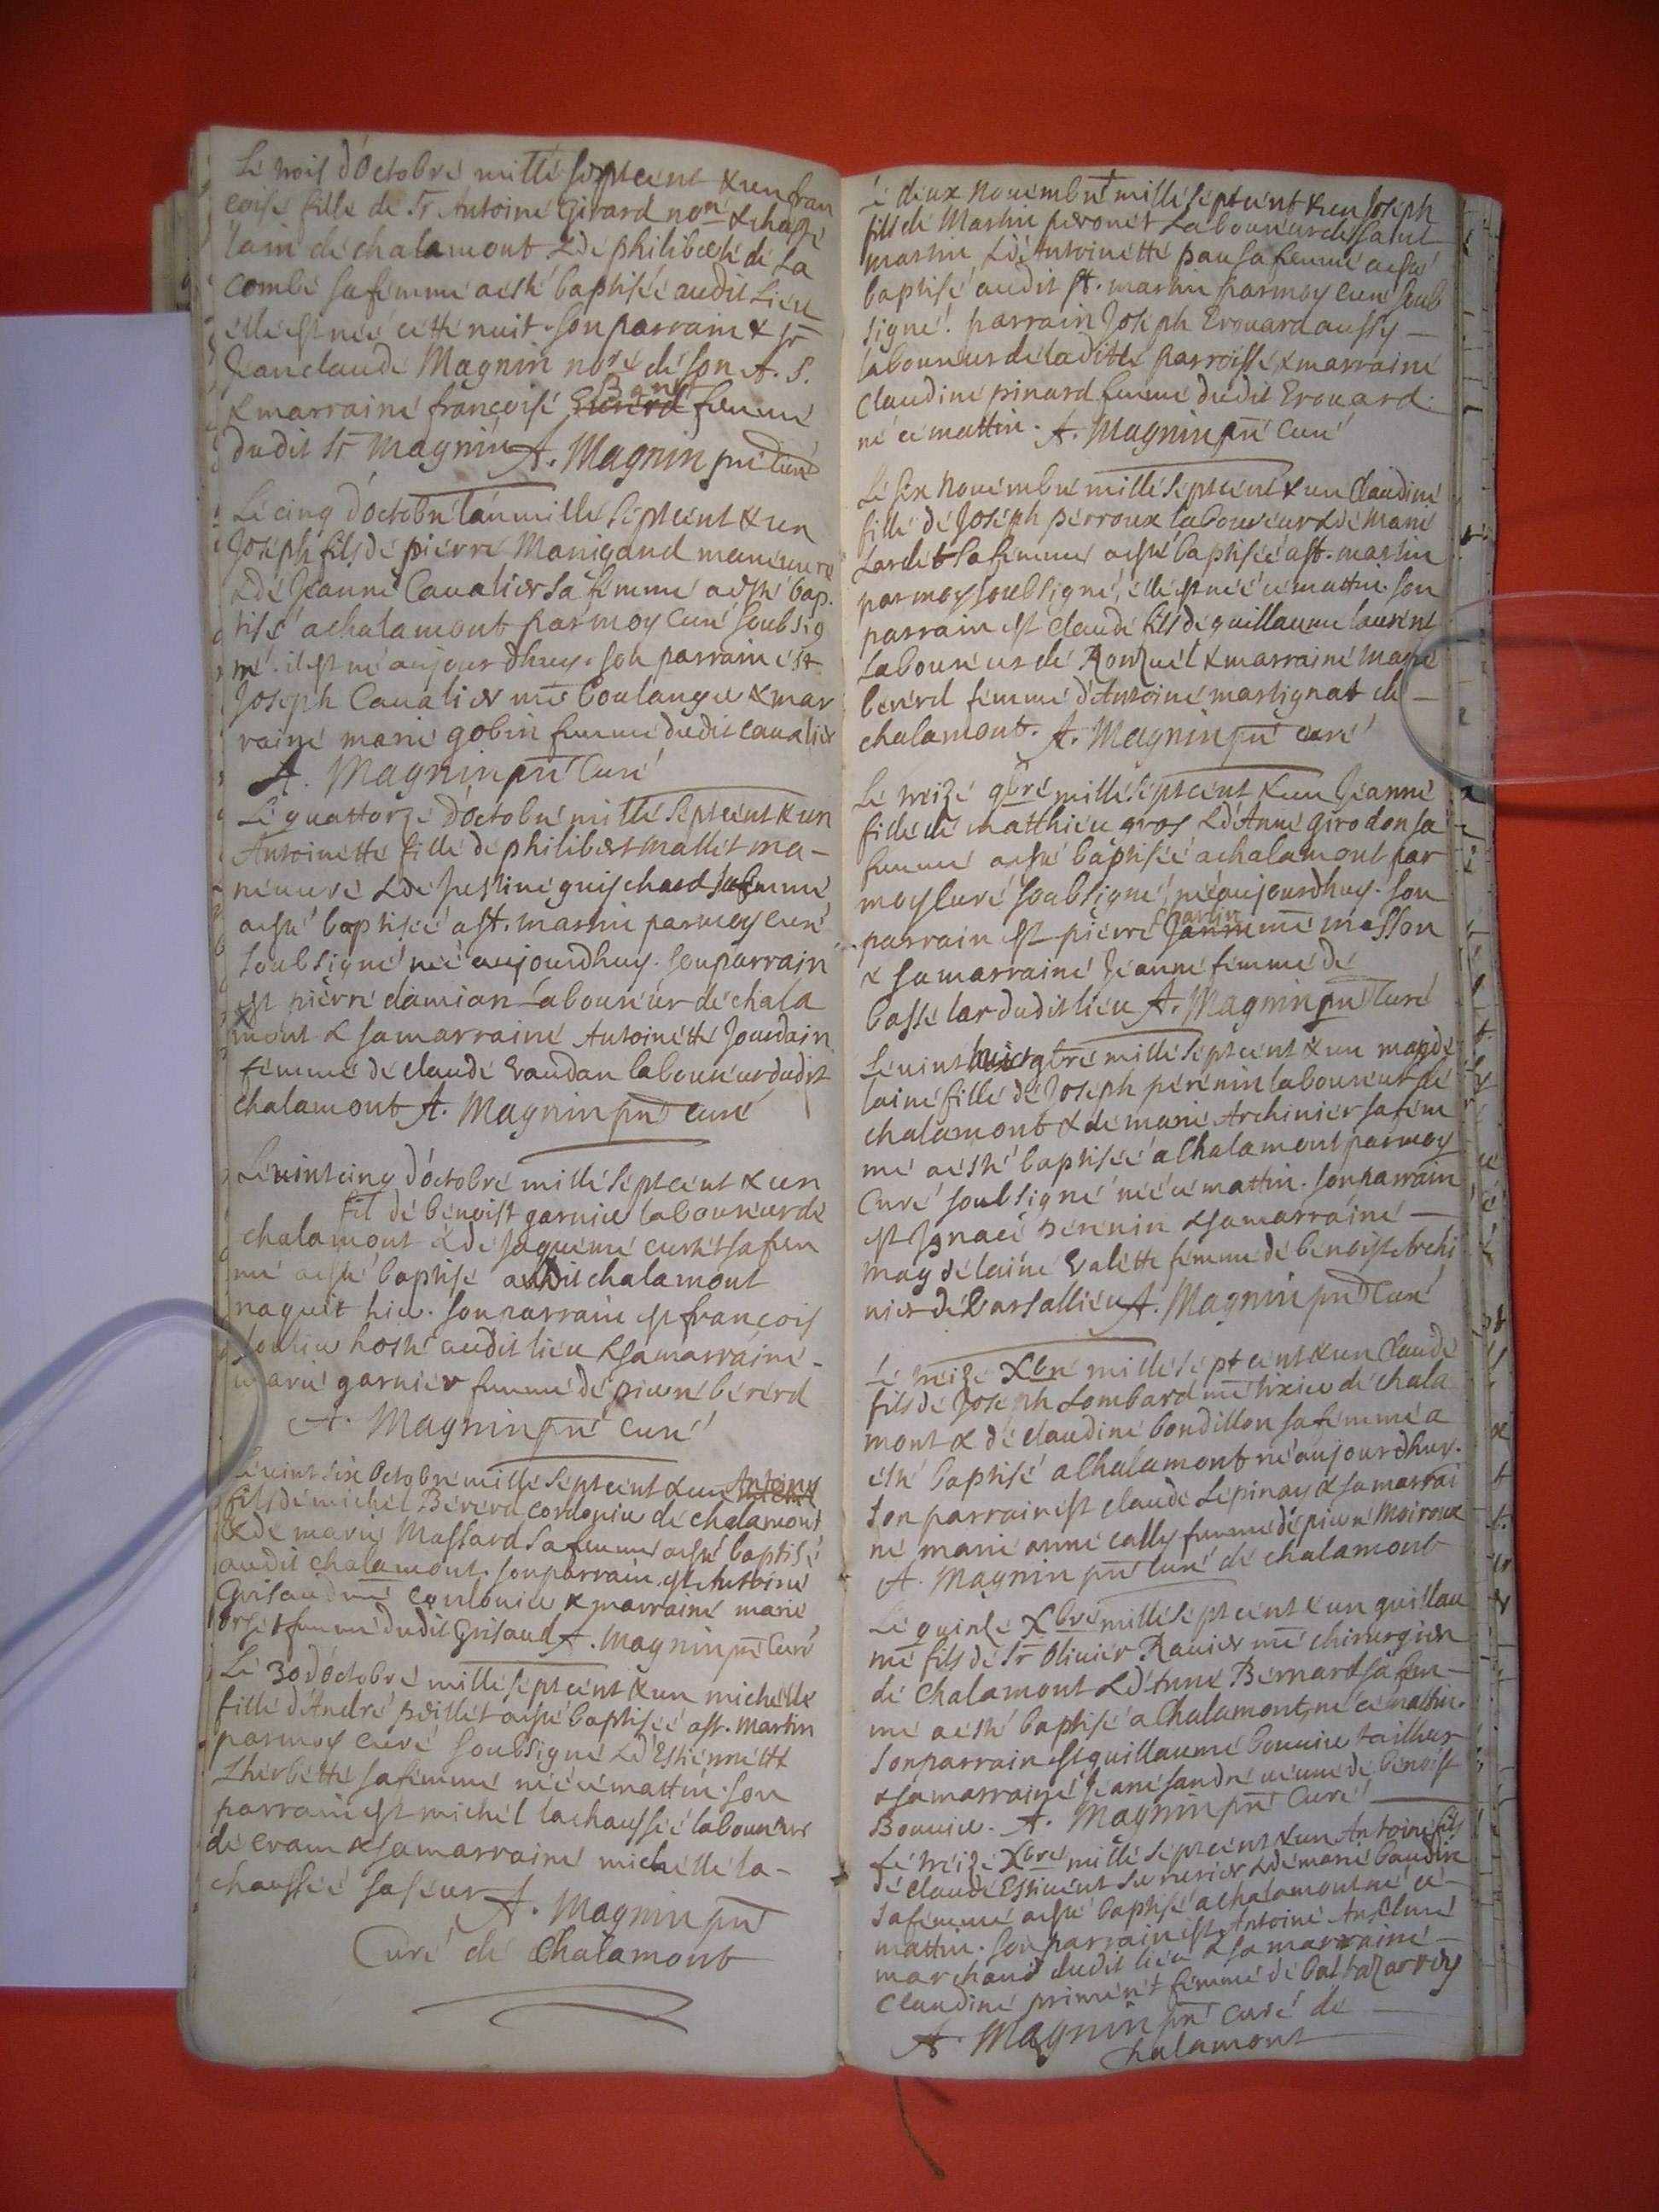 Le trois d'Octobre mille septcent & un fran
coise fille de Sr Antoine Girard nore & chate
lain de chalamont & de philiberte de La
combe sa femme a esté baptisée audit Lieu
elle est neé cette nuit. son parrain & sr
Jean claude Magnin nore de son A. S.
& marraine francoise femme
dudit Sr Magnin A. Magnin pre Curé
Le cinq d'octobre l'an mille septcent & un
Joseph fils de pierre Manigand maneuvre
& de Jeanne Cavalier sa femme a esté bap.
tisé a chalamont par moy Curé soubsig
né. il est né aujourdhuy. son parrain est
Joseph Cavalier me boulanger & mar
raine marie gobin femme dudit cavalier
A. Magnin pre Curé
Le quattorze d'octobre mille septcent & un
Antoinette fille de philibert mallet ma-
neuvre & de Justine guichard sa femme
a esté baptisée a st. martin par moy curé
soubsigné neé aujourdhuy. son parrain
est pierre damian laboureur de chala
mont & sa marraine Antoinette Jourdain
femme de claude Vaudan laboureur dudit
chalamont A. Magnin pre curé
Le vint cinq d'octobre mille septcent & un
fil de benoist garnier laboureur de
chalamont & de Jaqueme curtet sa fem
me a esté baptisé audit chalamont
naquit hier. son parrain est francois
hoste audit lieu & sa marraine -
marie garnier femme de pierre bererd
A. Magnin pre curé
Le vint six Octobre mille septcent & un Antoine
fils de michel Bererd cordonier de chalamont
& de marie Massard sa femme a esté baptisé
audit chalamont. son parrain est Antoine
Grisaud me cordonier & marraine marie
orset femme dudit Grisaud A. Magnin pre Curé
Le 30 d'octobre mille septcent & un michelle
fille d'André peillet a esté baptisée a st. Martin
par moy curé soubsigné & d'Estiennette
Lherbette sa femme neé ce mattin. son
parrain est michel lachaussée laboureur
de crans & sa marraine michelle la-
chaussée sa seur A. Magnin pre
Curé de Chalamont
Le deux Novembre mille septcent & un Joseph
fils de Martin peronet Laboureur de saint
martin & de Antoinette pau sa femme a esté
baptisé audit st. martin par moy curé soub
signé. parrain Joseph Erouard aussy -
laboureur de laditte parroisse, & marraine
Claudine pinard femme dudit Erouard.
né ce mattin. A. Magnin pre Curé
Le six Novembre mille septcent & un Claudine
fille de Joseph perroux laboureur & de Marie
Lardet sa femme a esté baptisée a st. martin
par moy soubsigné, elle est neé ce mattin. son
parrain est claude fils de guillaume laurent
laboureur de Ronzuel & marraine Marie
bererd femme d'Antoine martignat de -
chalamont. A. Magnin pre curé
Le treize 9bre mille septcent & un Jeanne
fille de matthieu gros & d'Anne girodon sa
femme a esté baptisée a chalamont par
moy Curé soubsigné, neé aujourdhuy. son
parrain est pierre me masson
& sa marraine Jeanne femme de
basse lar dudit lieu A. Magnin pre Curé
Le vint huict 9bre mille septcent & un magde
laine fille de Joseph perenin laboureur de
chalamont & de marie Archinier sa fem
me a esté baptisée a Chalamont par moy
Curé soubsigné neé ce mattin. son parrain
est Ignace perenin & sa marraine -
magdelaine Valette femme de benoist Archi
nier de A. Magnin pre Curé
Le treize Xbre mille septcent & un Claude
fils de Joseph Lombard me tixier de chala
mont & de claudine boudillon sa femme a
esté baptisé a Chalamont né aujourdhuy.
son parrain est claude Lepinay & sa marrai
ne marie anne cally femme de pierre Moiroux
A. Magnin pre Curé de chalamont
Le quinze Xbre mille septcent & un guillau
me fils de Sr Olivier Ravier me chirurgien
de Chalamont & d'Anne Bernard sa fem-
me a esté baptisé a Chalamont, né ce mattin.
son parrain est guillaume bouvier tailleur
& sa marraine Jeane sandre veuve de benoist
Bouvier. A. Magnin pre Curé
Le treize Xbre mille septcent & un Antoine fils
de claude Estivent serrurier & de marie baudin
sa femme a esté baptisé a chalamont né ce -
mattin. son parrain est Antoine Anselme
marchand dudit lieu & sa marraine -
Claudine priment femme de baltazar rey
A. Magnin pre curé de -
chalamont